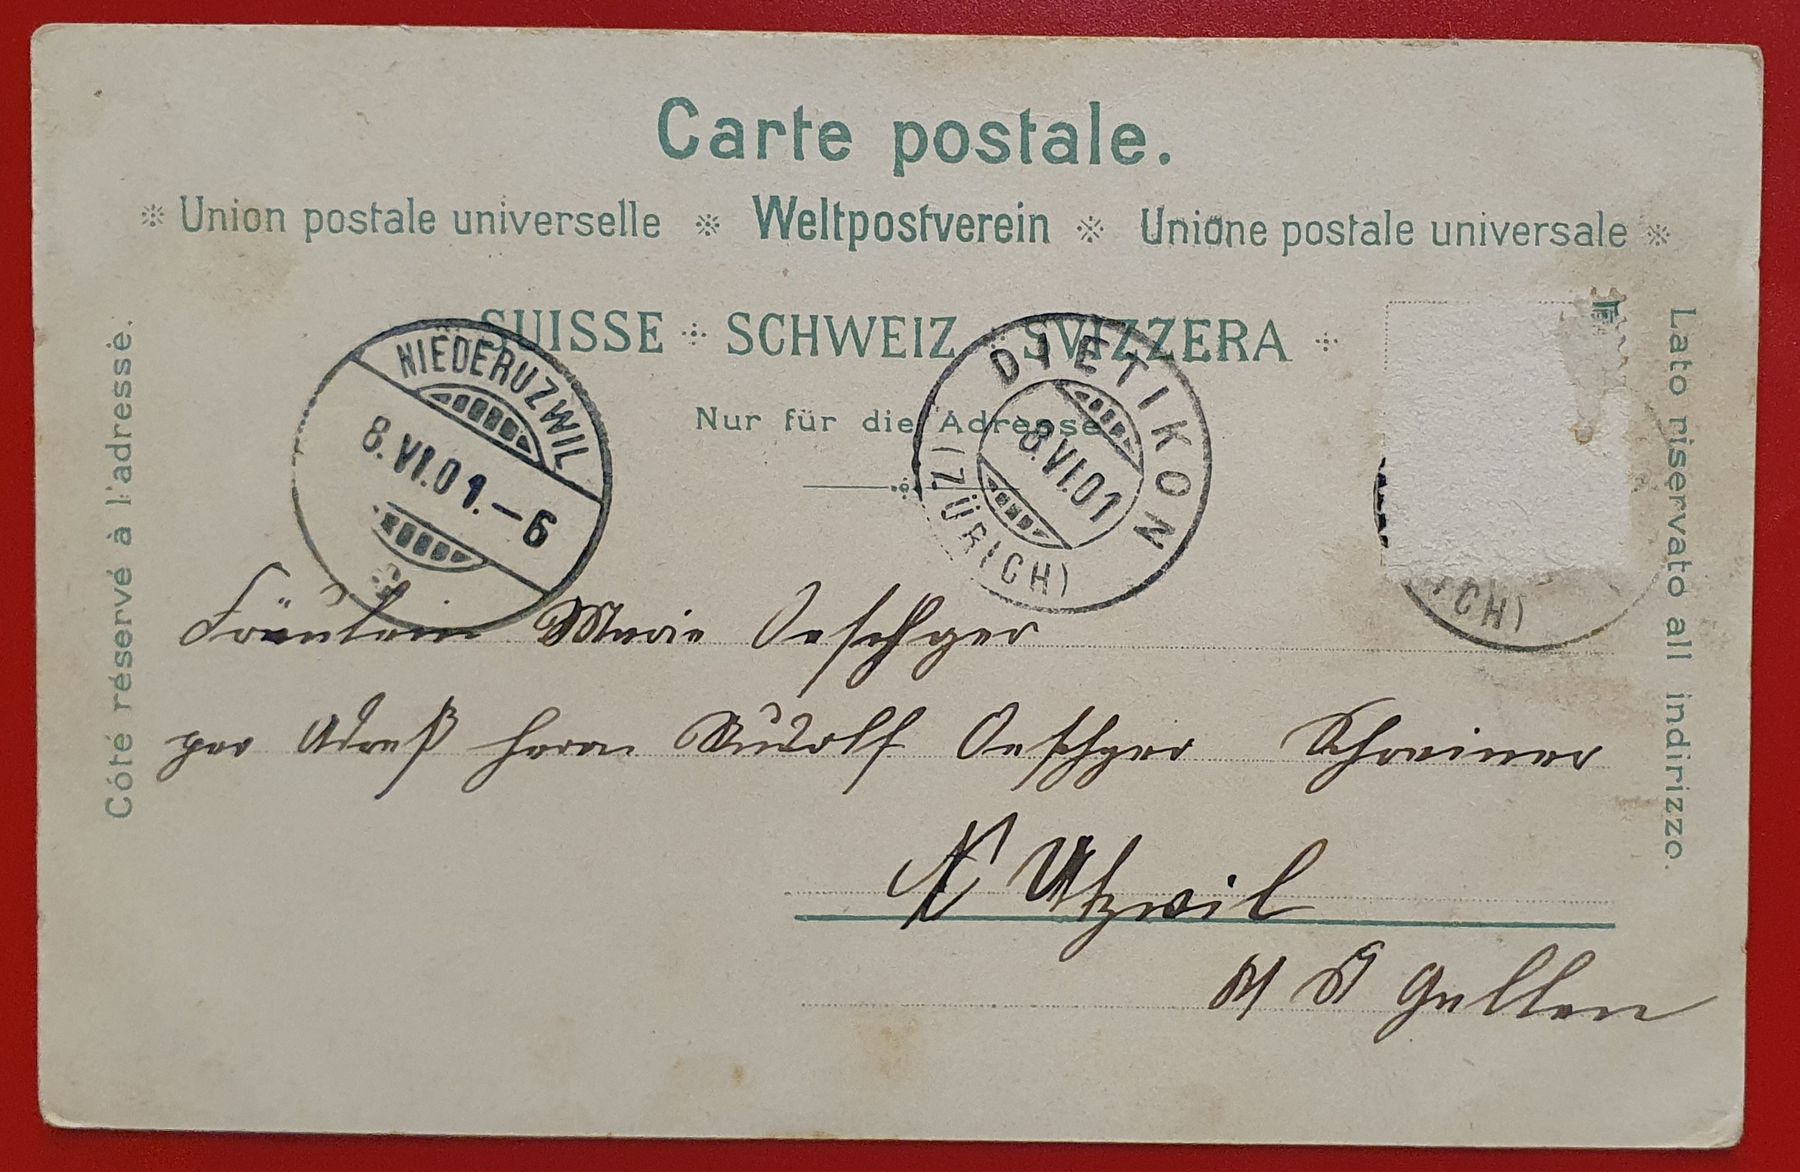 Carte postale.
Union postale universelle Weltpostverein Unione postale universale
SUISSE SCHWEIZ SVIZZERA
Nur für die Adresse
Côté réservé à l'adresse.
Lato riservato all indirizzo.
NIEDERUZWIL
8.VI.01.-6
DIETIKON
8.VI.01
(ZÜRICH)
ICH)
Fräulein Marie Oeschger
per Adreß Herrn Rudolf Oeschger Schreiner
N Utzwil
Kt St Gallen